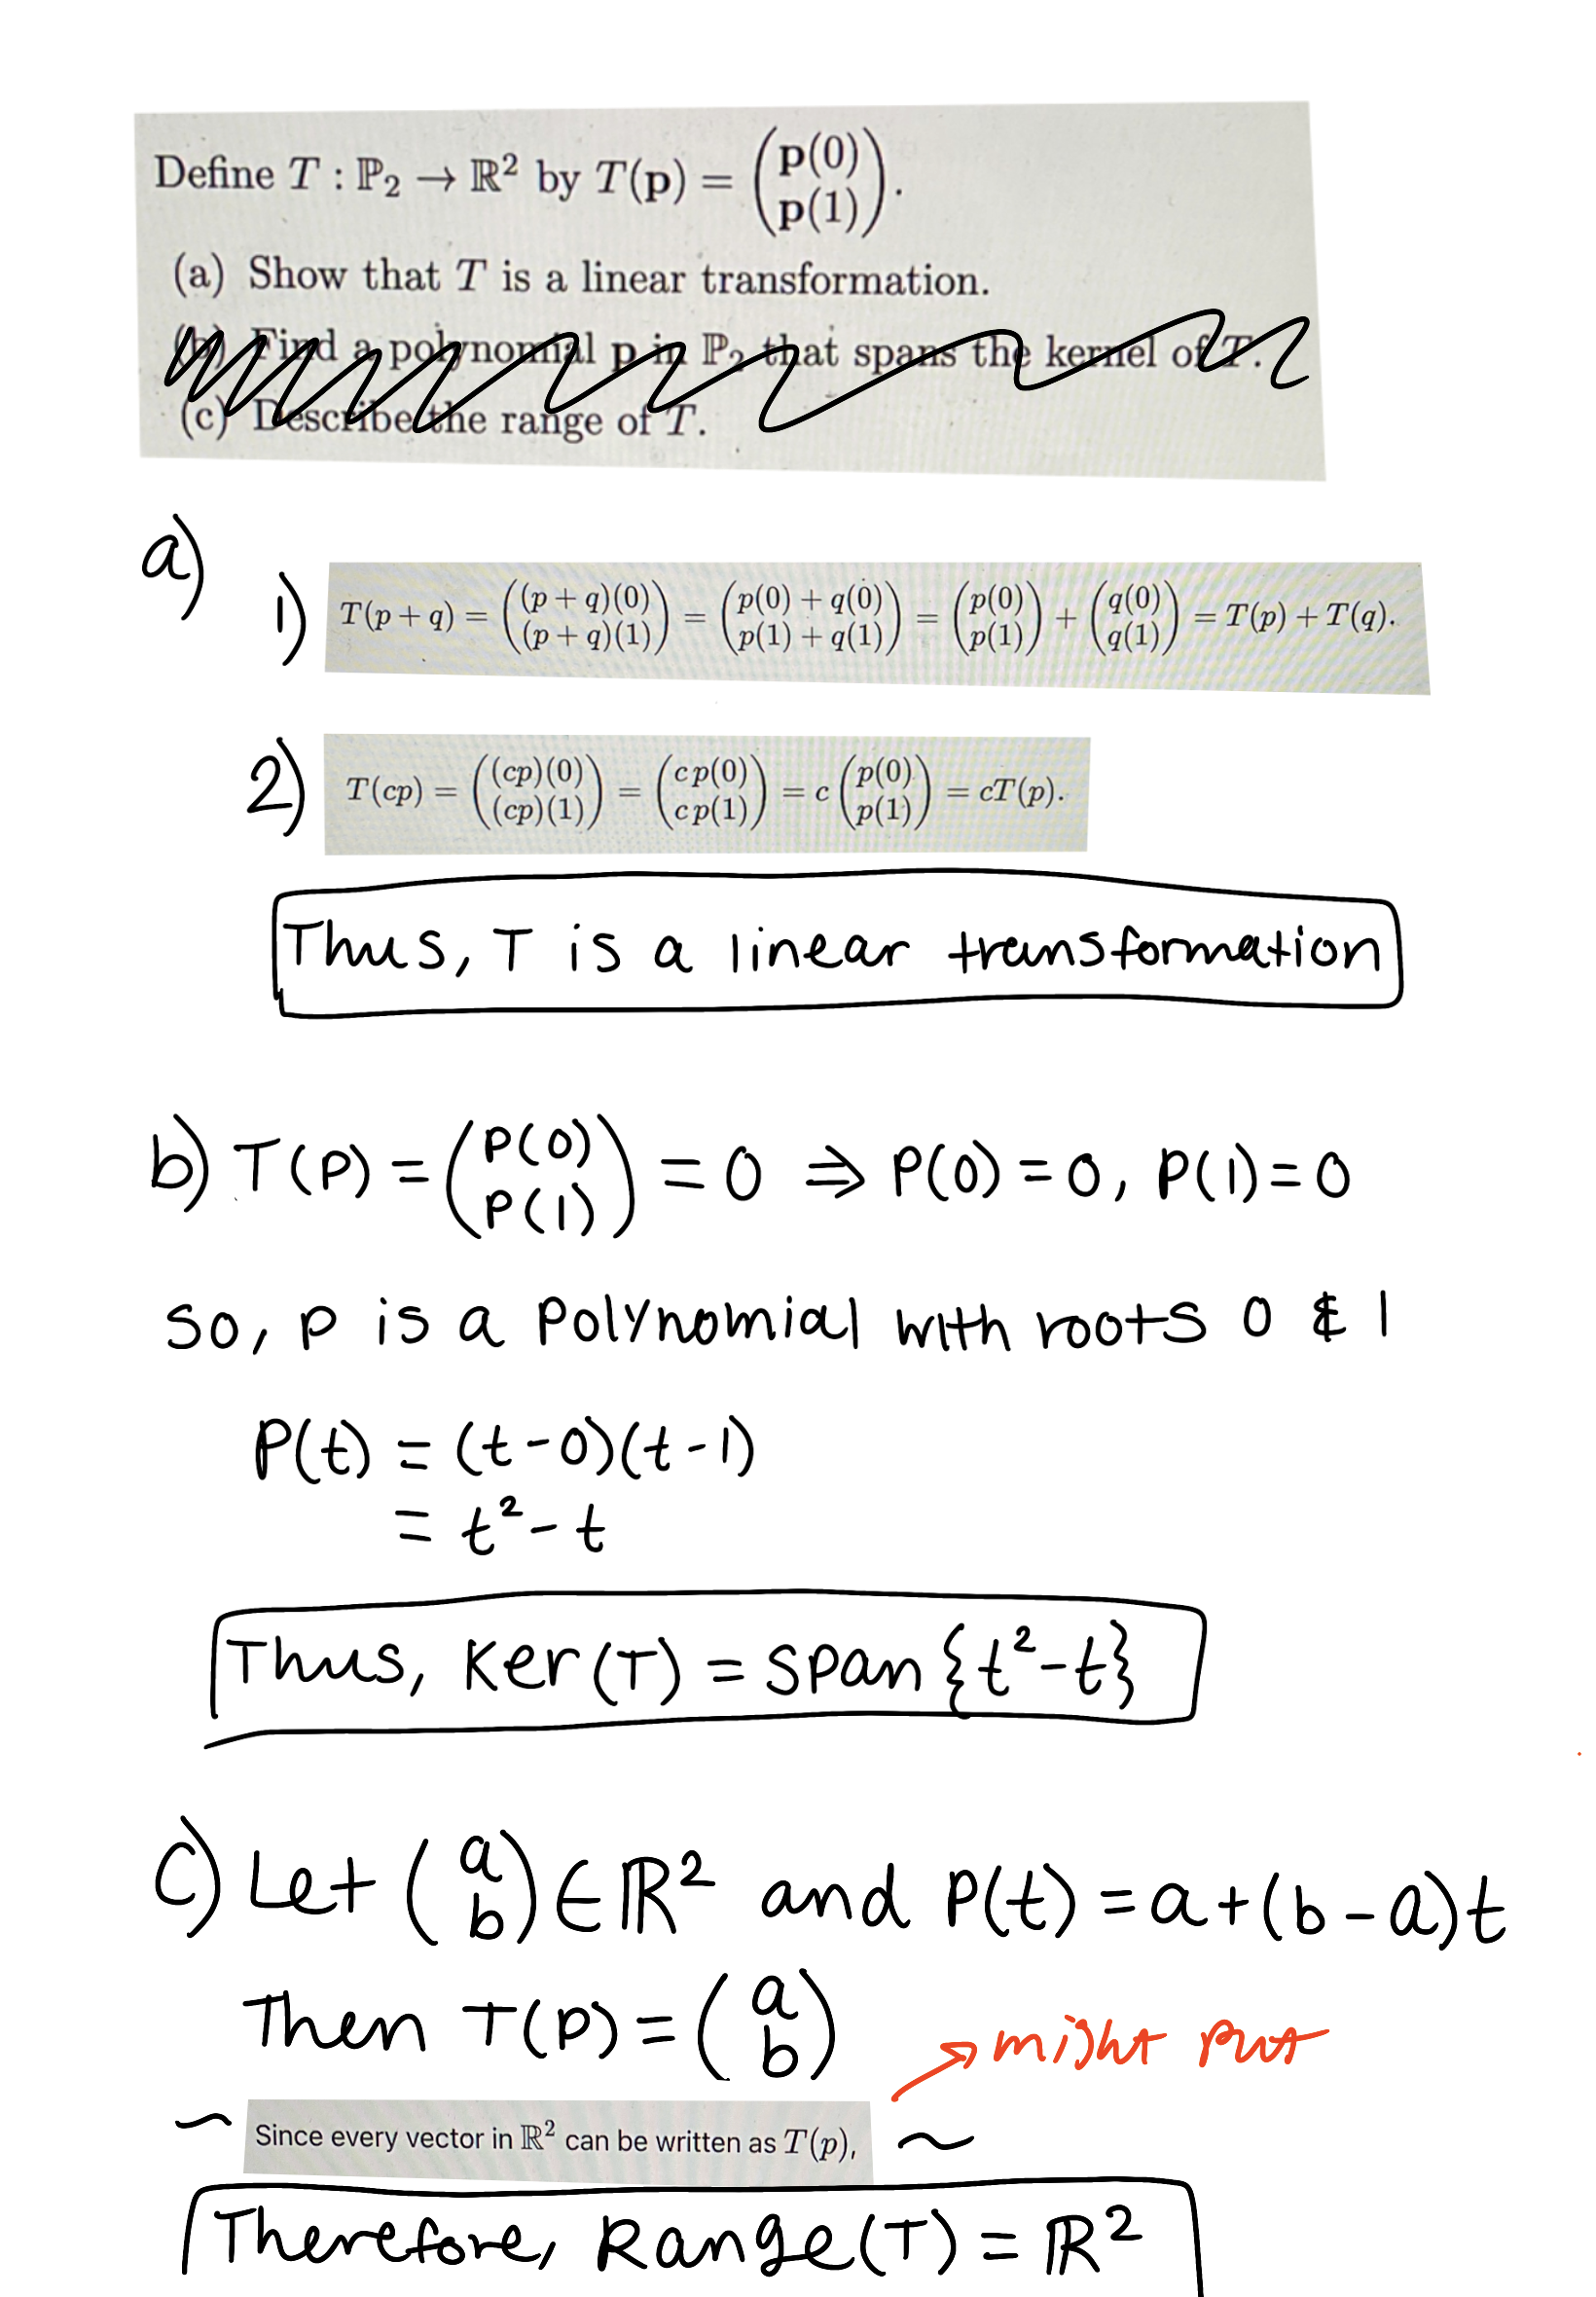 Define T : ℙ₂ → ℝ² by T(p) = (p(0) p(1)).
(a) Show that T is a linear transformation.
(b) Find a polynomial p in ℙ₂ that spans the kernel of T.
(c) Describe the range of T.
a)
1) T(p + q) = ((p + q)(0) (p + q)(1)) = (p(0) + q(0) p(1) + q(1)) = (p(0) p(1)) + (q(0) q(1)) = T(p) + T(q).
2) T(cp) = ((cp)(0) (cp)(1)) = (c p(0) c p(1)) = c (p(0) p(1)) = cT(p).
Thus, T is a linear transformation
b) T(P) = (P(0) P(1)) = 0 ⇒ P(0) = 0, P(1) = 0
so, p is a polynomial with roots 0 & 1
P(t) = (t-0)(t-1)
= t² - t
Thus, Ker(T) = span{t²-t}
c) Let (a b) ∈ ℝ² and P(t) = a + (b-a)t
Then T(P) = (a b)
→ might put
~ Since every vector in ℝ² can be written as T(p), ~
Therefore, Range(T) = ℝ²